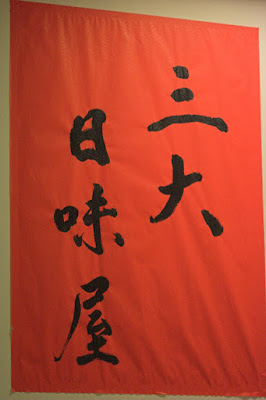 三大
日味屋